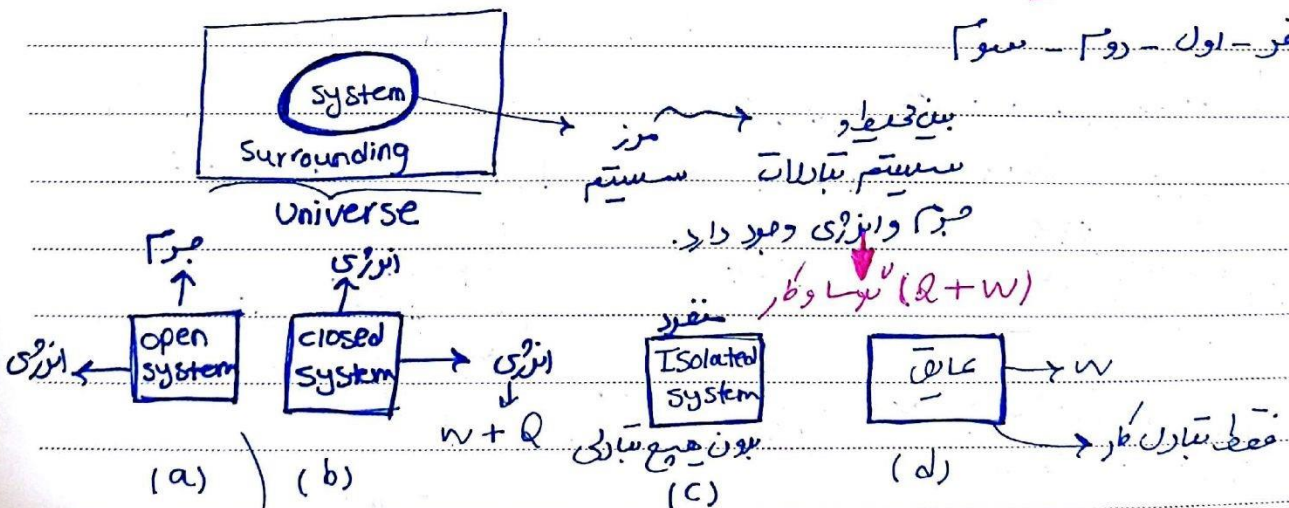 اول - دوم - سوم
system
Surrounding
Universe
مرز
سیستم
بین محیط و
سیستم تبادلات
جرم و انرژی وجود دارد.
گرما و کار (Q + W)
جرم
انرژی
open
system
(a)
انرژی
closed
system
انرژی
W + Q
(b)
منفرد
Isolated
system
بدون هیچ تبادلی
(c)
عایق
W
فقط تبادل کار
(d)